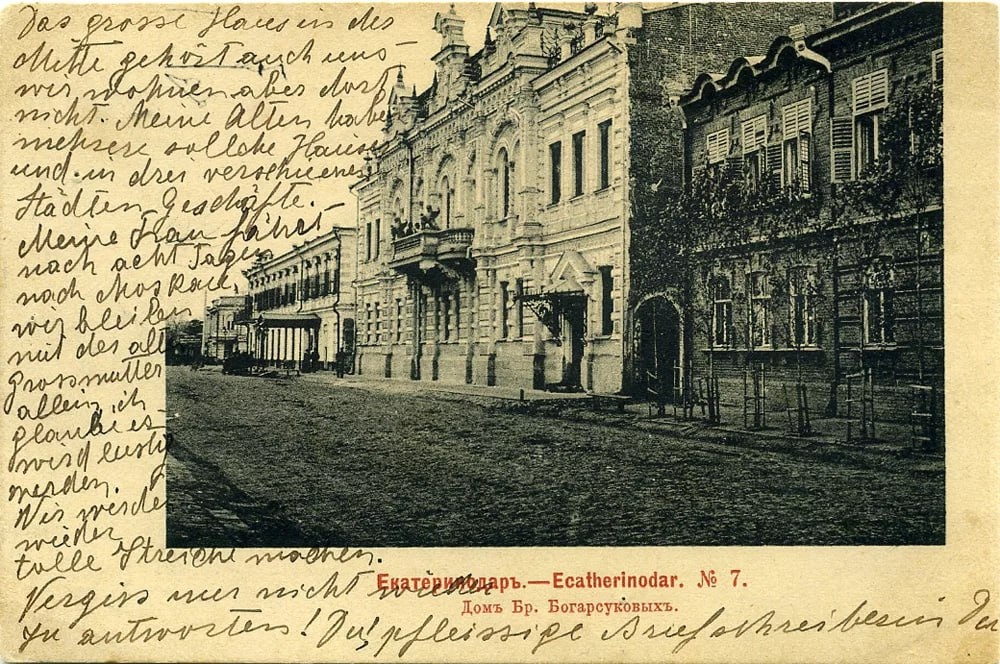 Das grosse Haus in der
Mitte gehört auch uns
wir wohnen aber dort
nicht. Meine Alten habe
mehrere sollche Häuser
und in drei verschiene
Städten Geschäfte.
Meine Frau fährt
nach acht Tagen
nach Moskau,
wir bleiben
mit der alt
Grossmutter
allein, ich
glaube es
wird lustig
werden.
Wir werde
wieder
tolle Streiche machen.
Vergiss nur nicht wieder
zu antworten! Du! pfleissige Briefschreiberin Du
Екатеринодаръ.—Ecatherinodar. № 7.
Домъ Бр. Богарсуковыхъ.